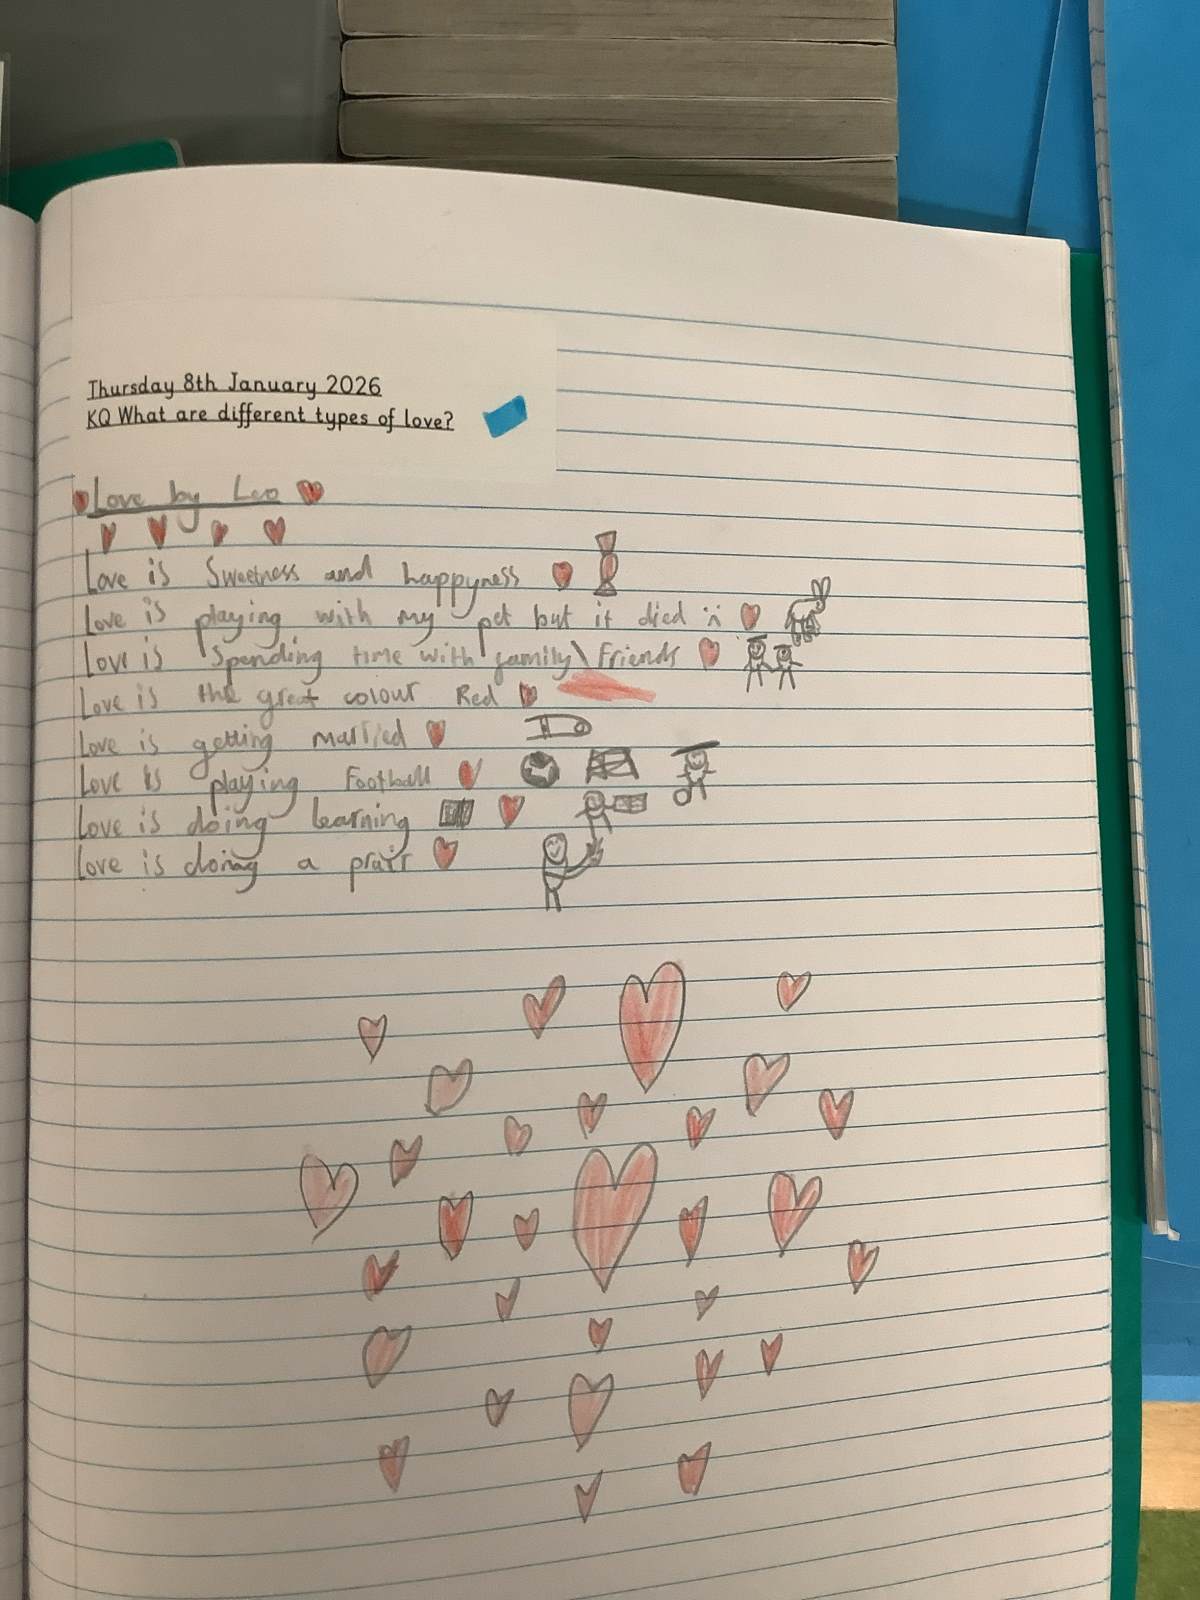 Thursday 8th January 2026
KQ What are different types of love?
Love by Leo
Love is Sweetness and happyness
Love is playing with my pet but it died
Love is Spending time with family\Friends
Love is the great colour Red
Love is getting married
Love is playing Football
Love is doing learning
Love is doing a prair